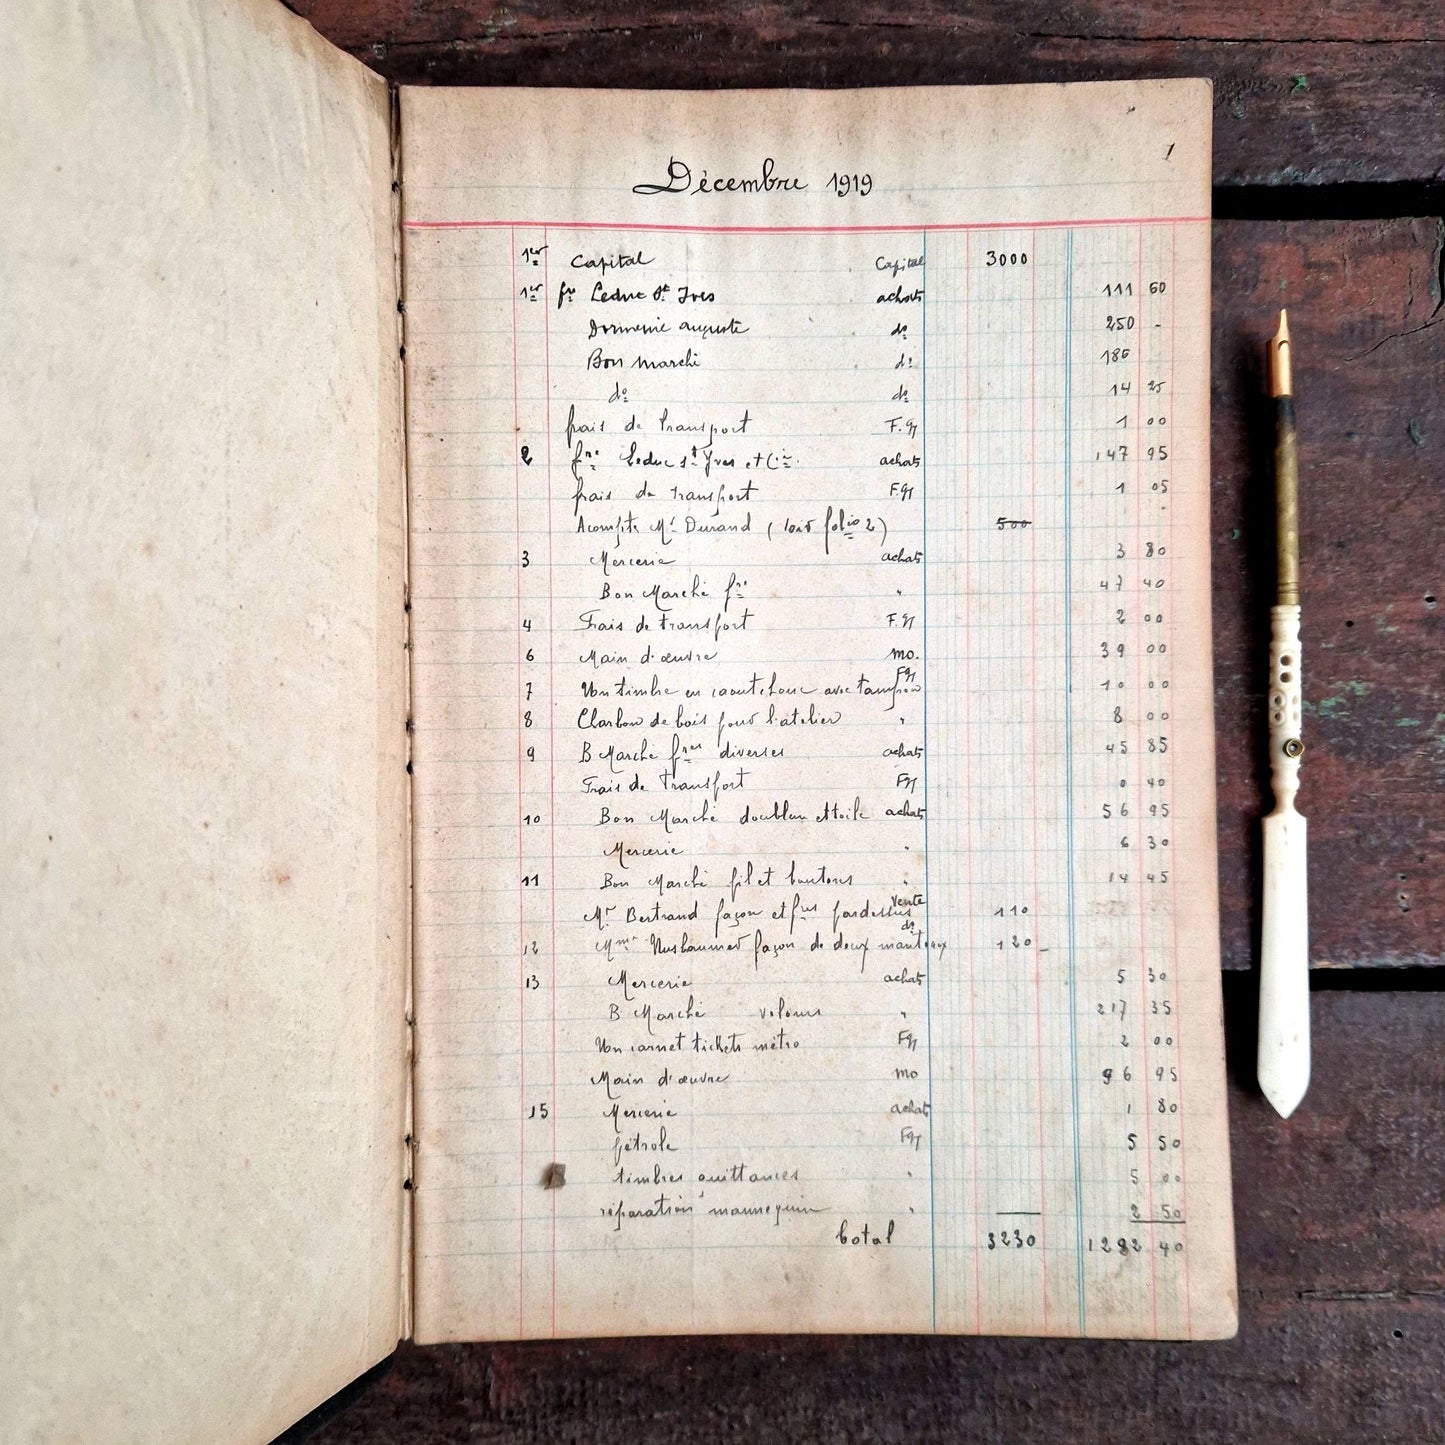 1
Décembre 1919
1er Capital Capital 3000
1er fre Leduc St Yves achats 111 60
auguste do 250 -
Bon Marché do 186
do do 14 25
frais de transport F.gx 1 00
2 fre Leduc St Yves et Cie achats 147 95
frais de transport F.gx 1 05
Acompte Mr Durand (voir folio 2) 500
3 Mercerie achats 3 80
Bon Marché fre " 47 40
4 Frais de transport F.gx 2 00
6 Main d'œuvre mo. 39 00
7 Un timbre en caoutchouc avec tampon Fgx 10 00
8 Charbon de bois pour l'atelier " 8 00
9 B Marché fres diverses achats 45 85
Frais de transport Fgx 0 40
10 Bon Marché doublure et toile achats 56 95
Mercerie " 6 30
11 Bon Marché fil et boutons " 14 45
Mr Bertrand façon et fres pardessus Vente 110
12 Mme façon de deux manteaux do 120 -
13 Mercerie achats 5 30
B Marché velours " 217 35
Un carnet tickets métro Fgx 2 00
Main d'œuvre mo 96 95
15 Mercerie achats 1 80
pétrole Fgx 5 50
timbres quittances " 5 00
réparation mannequin " 2 50
total 3230 1282 40